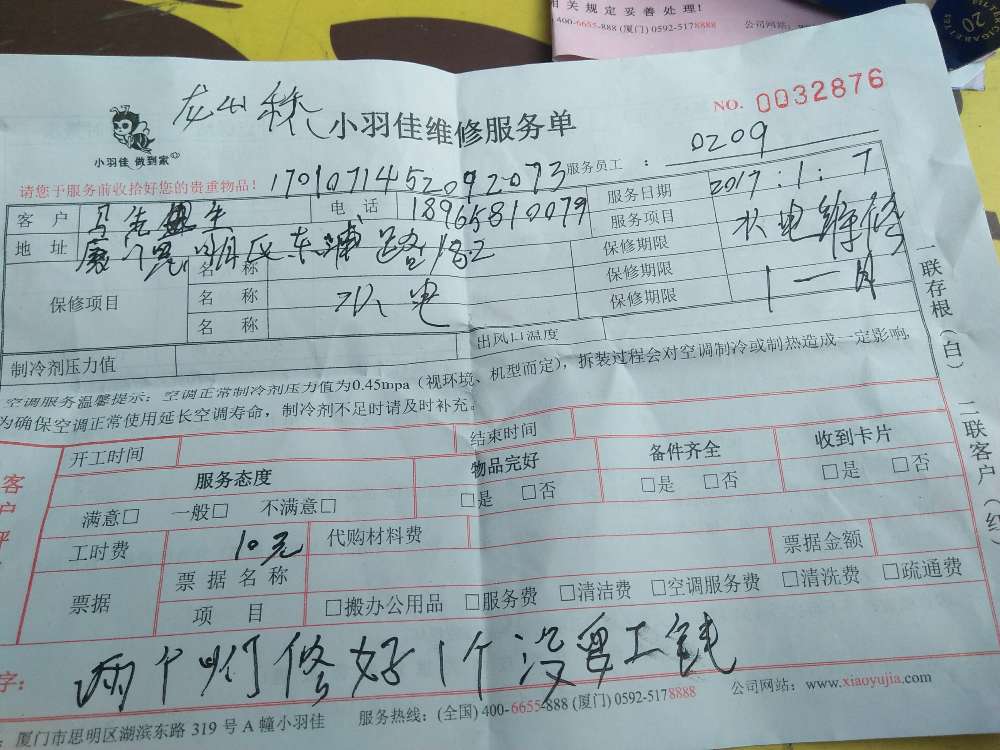 相关规定妥善处理!
400-6655-888 (厦门) 0592-5178888 公司网站:
CIGARETTE
20
龙山
小羽佳维修服务单
NO. 0032876
小羽佳 做到家
服务员工: 0209
请您于服务前收拾好您的贵重物品! 1701071452092073
客户 马先生 电话 18965810079 服务日期 2017:1:7
地址 东浦路182 服务项目 水电维修
保修项目 名称 保修期限
名称 水电 保修期限 1一月
名称 保修期限
制冷剂压力值 出风口温度
空调服务温馨提示:空调正常制冷剂压力值为0.45mpa(视环境、机型而定),拆装过程会对空调制冷或制热造成一定影响,
为确保空调正常使用延长空调寿命,制冷剂不足时请及时补充。
一联存根(白) 二联客户(红)
开工时间 结束时间
服务态度 物品完好 备件齐全 收到卡片
满意□ 一般□ 不满意□ □是 □否 □是 □否 □是 □否
工时费 10元 代购材料费 票据金额
票据 票据名称
项目 □搬办公用品 □服务费 □清洁费 □空调服务费 □清洗费 □疏通费
客户评
字: 两个灯修好1个没要工钱
厦门市思明区湖滨东路319号A幢小羽佳 服务热线:(全国) 400-6655-888 (厦门) 0592-5178888 公司网站:www.xiaoyujia.com